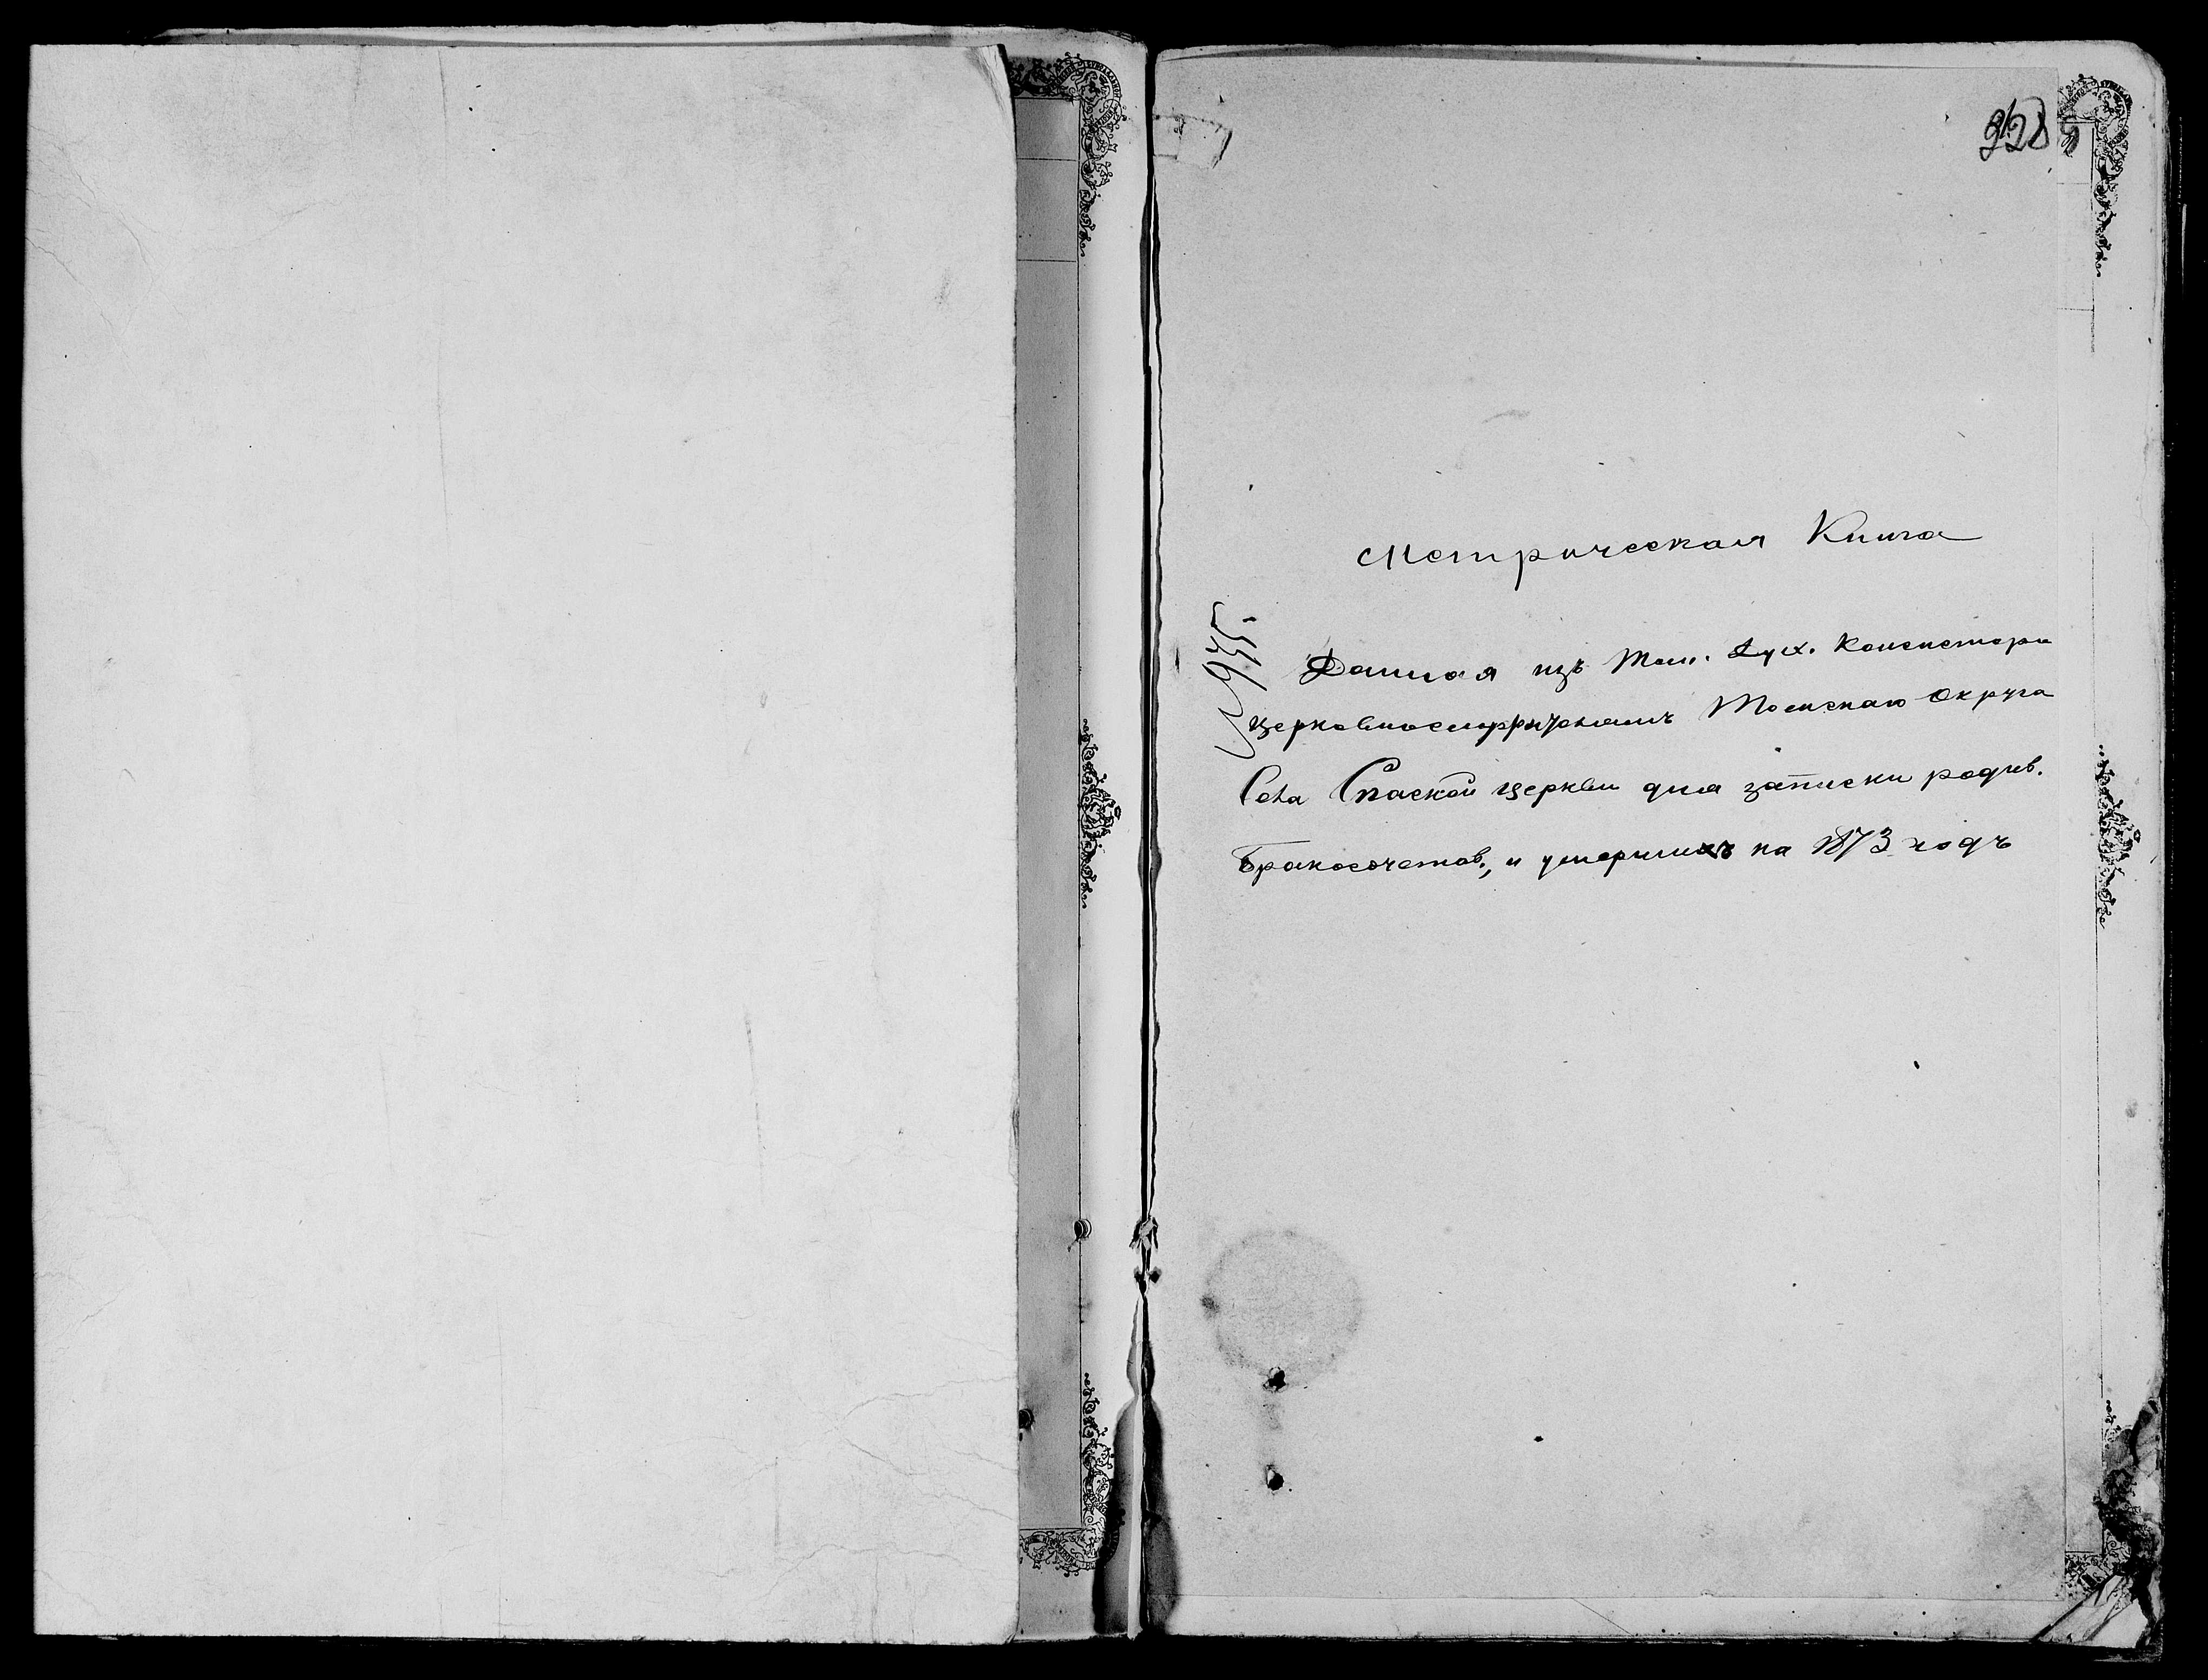 Метрическая Книга
Данная изъ Том. Дух. Консистори
церковнослужителямъ Томскаго Округа
Села Спаской церкви для записки родив.
Бракосочетав., и умершихъ на 1873 годъ